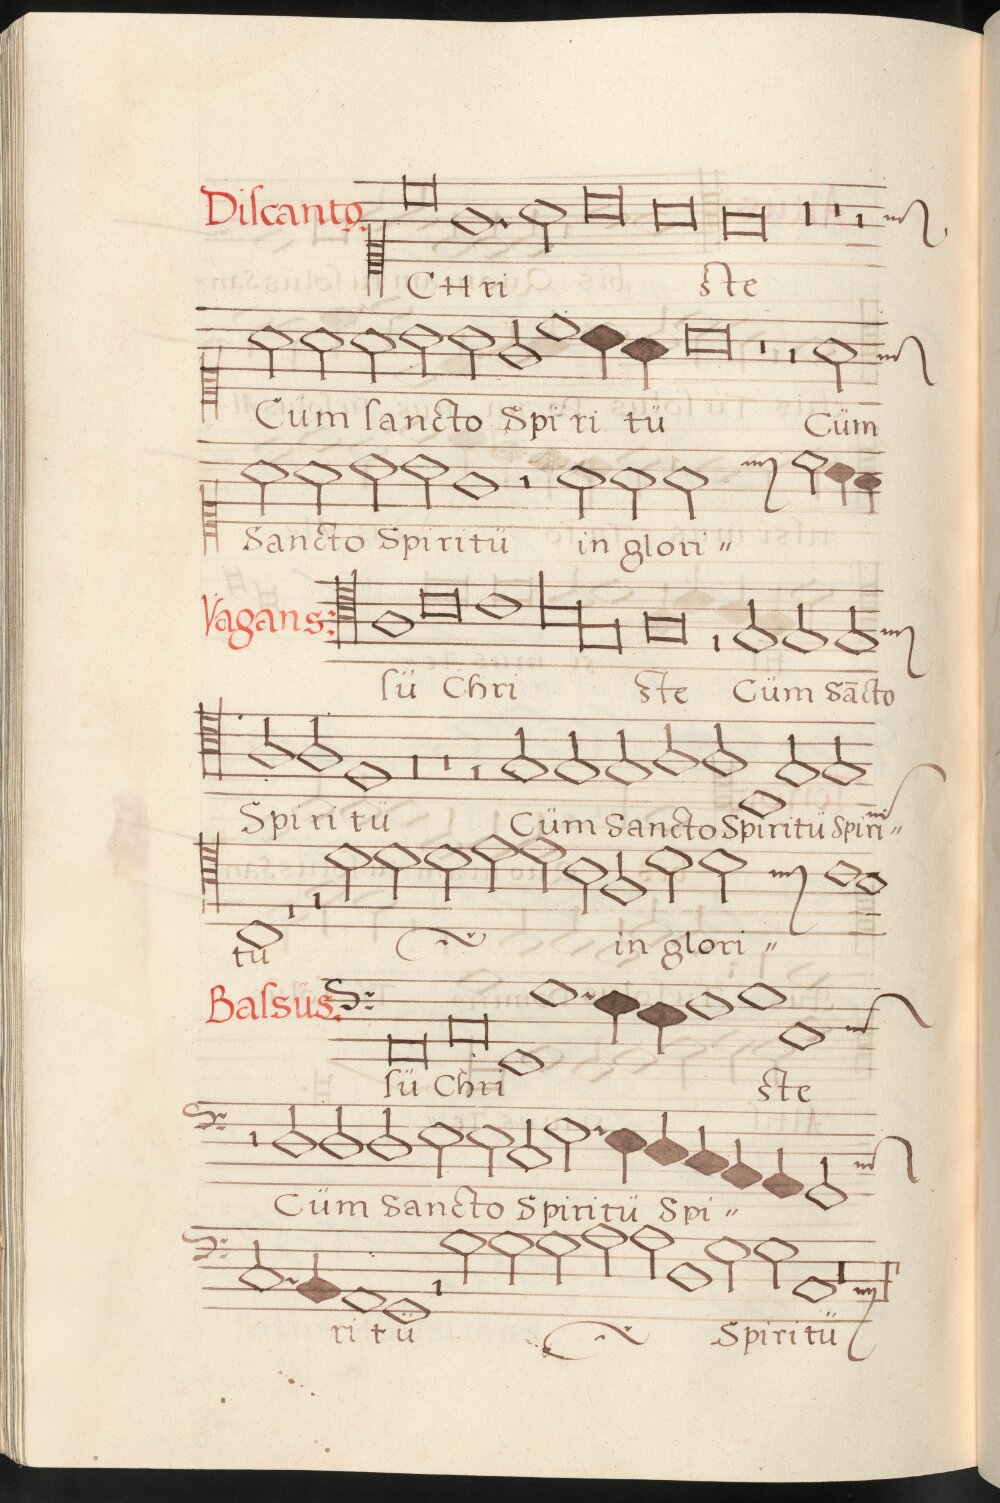 Discanto.
CHri ste
Cum sancto Spiri tü Cüm
Sancto Spiritü in glori "
Vagans:
sü Chri ste Cüm Sācto
Spiri tü Cüm Sancto Spiritü Spiri "
tü in glori "
Bassüs:
sü Chri ste
Cüm Sancto Spiritü Spi "
ri tü Spiritü